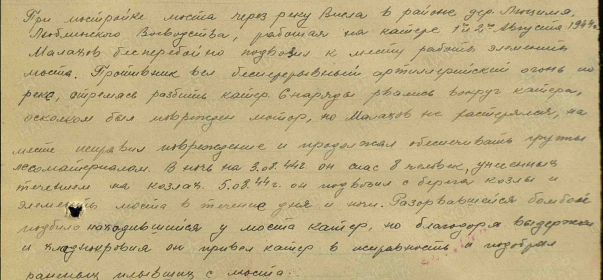 При постройке моста через реку Висла в районе дер. Люцимя,
Люблинского Воеводства, работая на катере 1 и 2го Августа 1944 г.
Малахов бесперебойно подвозил к месту работ элементы
моста. Противник вел беспрерывный артиллерийский огонь по
реке, стремясь разбить катер. Снаряды рвались вокруг катера,
осколком был поврежден мотор, но Малахов не растерялся, на
месте исправил повреждение и продолжал обеспечивать группы
лесоматериалом. В ночь на 3.08.44г. он спас 8 человек, унесенных
течением на козлах. 5.08.44г. он подвозил с берега козлы и
элементы моста в течение дня и ночи. Разорвавшейся бомбой
подбило находившийся у моста катер, но благодаря выдержки
и хладнокровия он привел катер в исправность и подобрал
раненых плывших с моста.